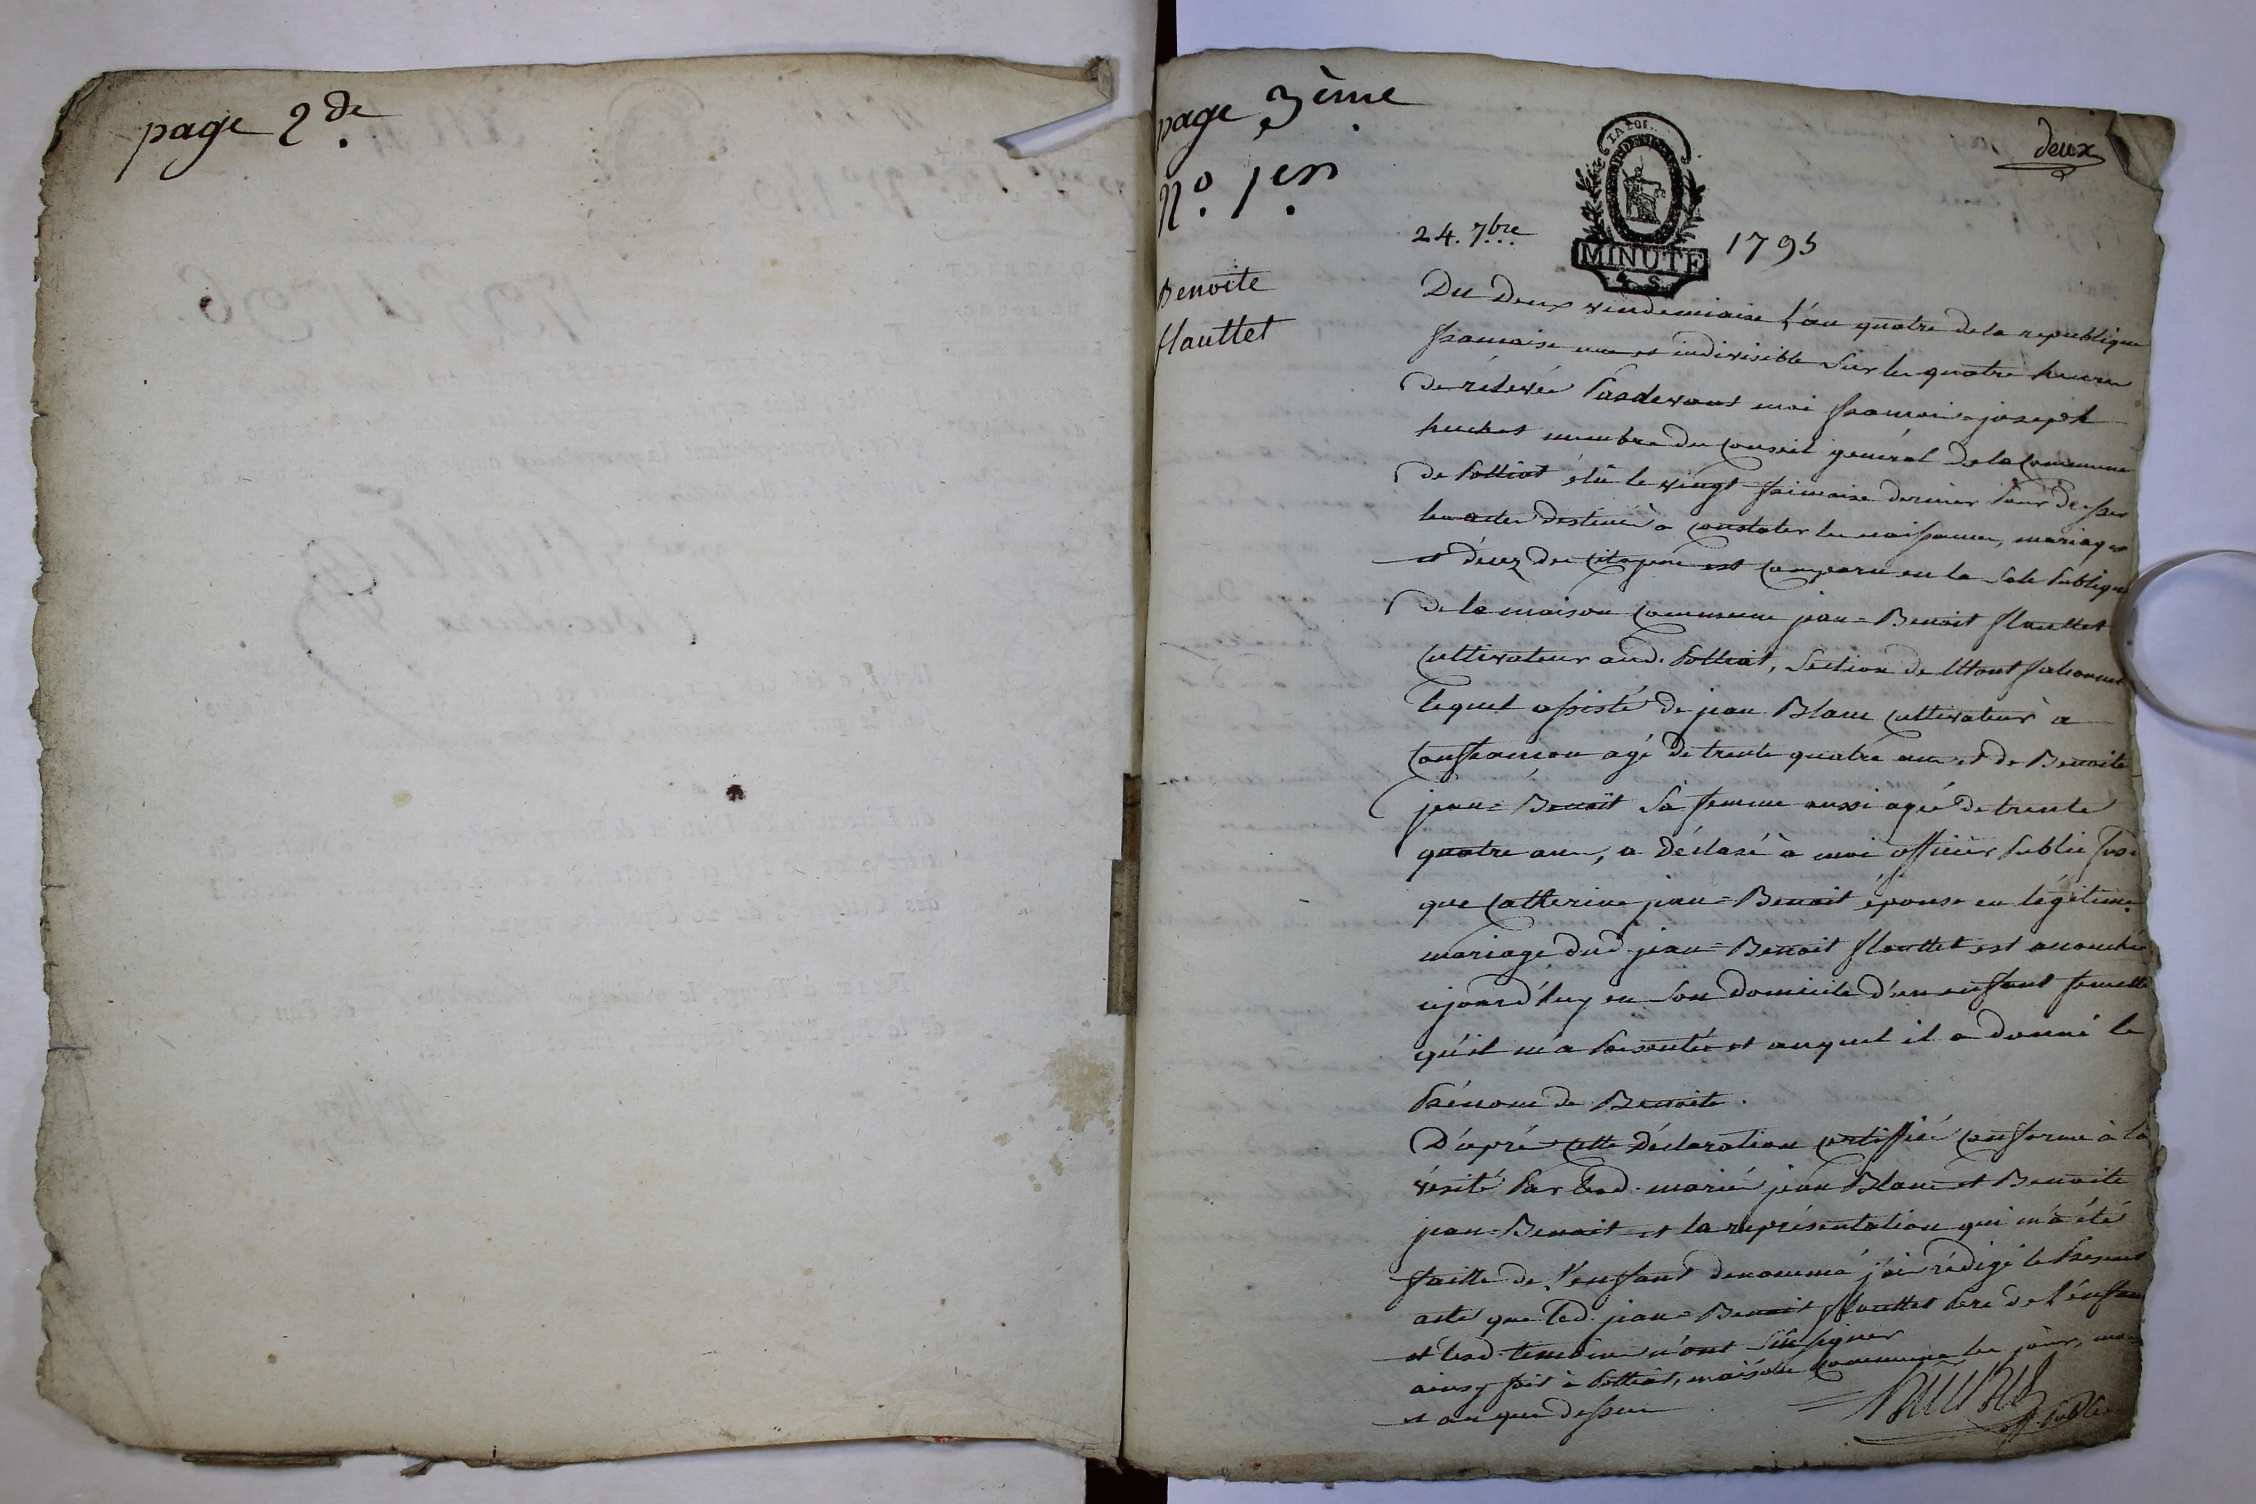 page 2de
page 3ème
deux
N.o 1er
LA LOI
24. 7bre 1795
MINUTE
4 S
Benoite
flauttet
Du Deux vendemiaire l'an quatre de la republique
francaise une et indivisible sur les quatre heures
de rélevée Pardevant moi francois joseph
huchet membre du Conseil général de la Commune
de Polliat élû le vingt frimaire dernier Pour dresser
les actes destinés à constater les naissances, mariages
et décez des citoyens est Comparu en la Sale Publique
de la maison Commune jean=Benoit flauttet
Cultivateur aud. Polliat, Section de Montfalconnet
lequel assisté de jean Blanc Cultivateur à
Confrancon agé de trente quatre ans et de Benoite
jean=Benoit Sa femme aussi agée de trente
quatre ans, a déclaré à moi officier Public
que Catterine jean=Benoit épouse en légitime
mariage dud. jean=Benoit flauttet est accouchée
ajourd'huy en Son domicile d'un enfant femelle
qu'il m'a Présentée et auquel il a donné le
Prénom de Benoite.
D'aprés cette déclaration certiffiée Conforme à la
vérité Par lesd. mariés jean Blanc et Benoite
jean=Benoit et la représentation qui m'a été
faitte de l'enfant denommé j'ai rédigé le Présent
acte que led. jean=Benoit flauttet Pere de l'enfant
et lesd. temoins n'ont Sû signer
ainsy fait à Polliat, maison Commune les jour, mois
et an que dessus
huchet